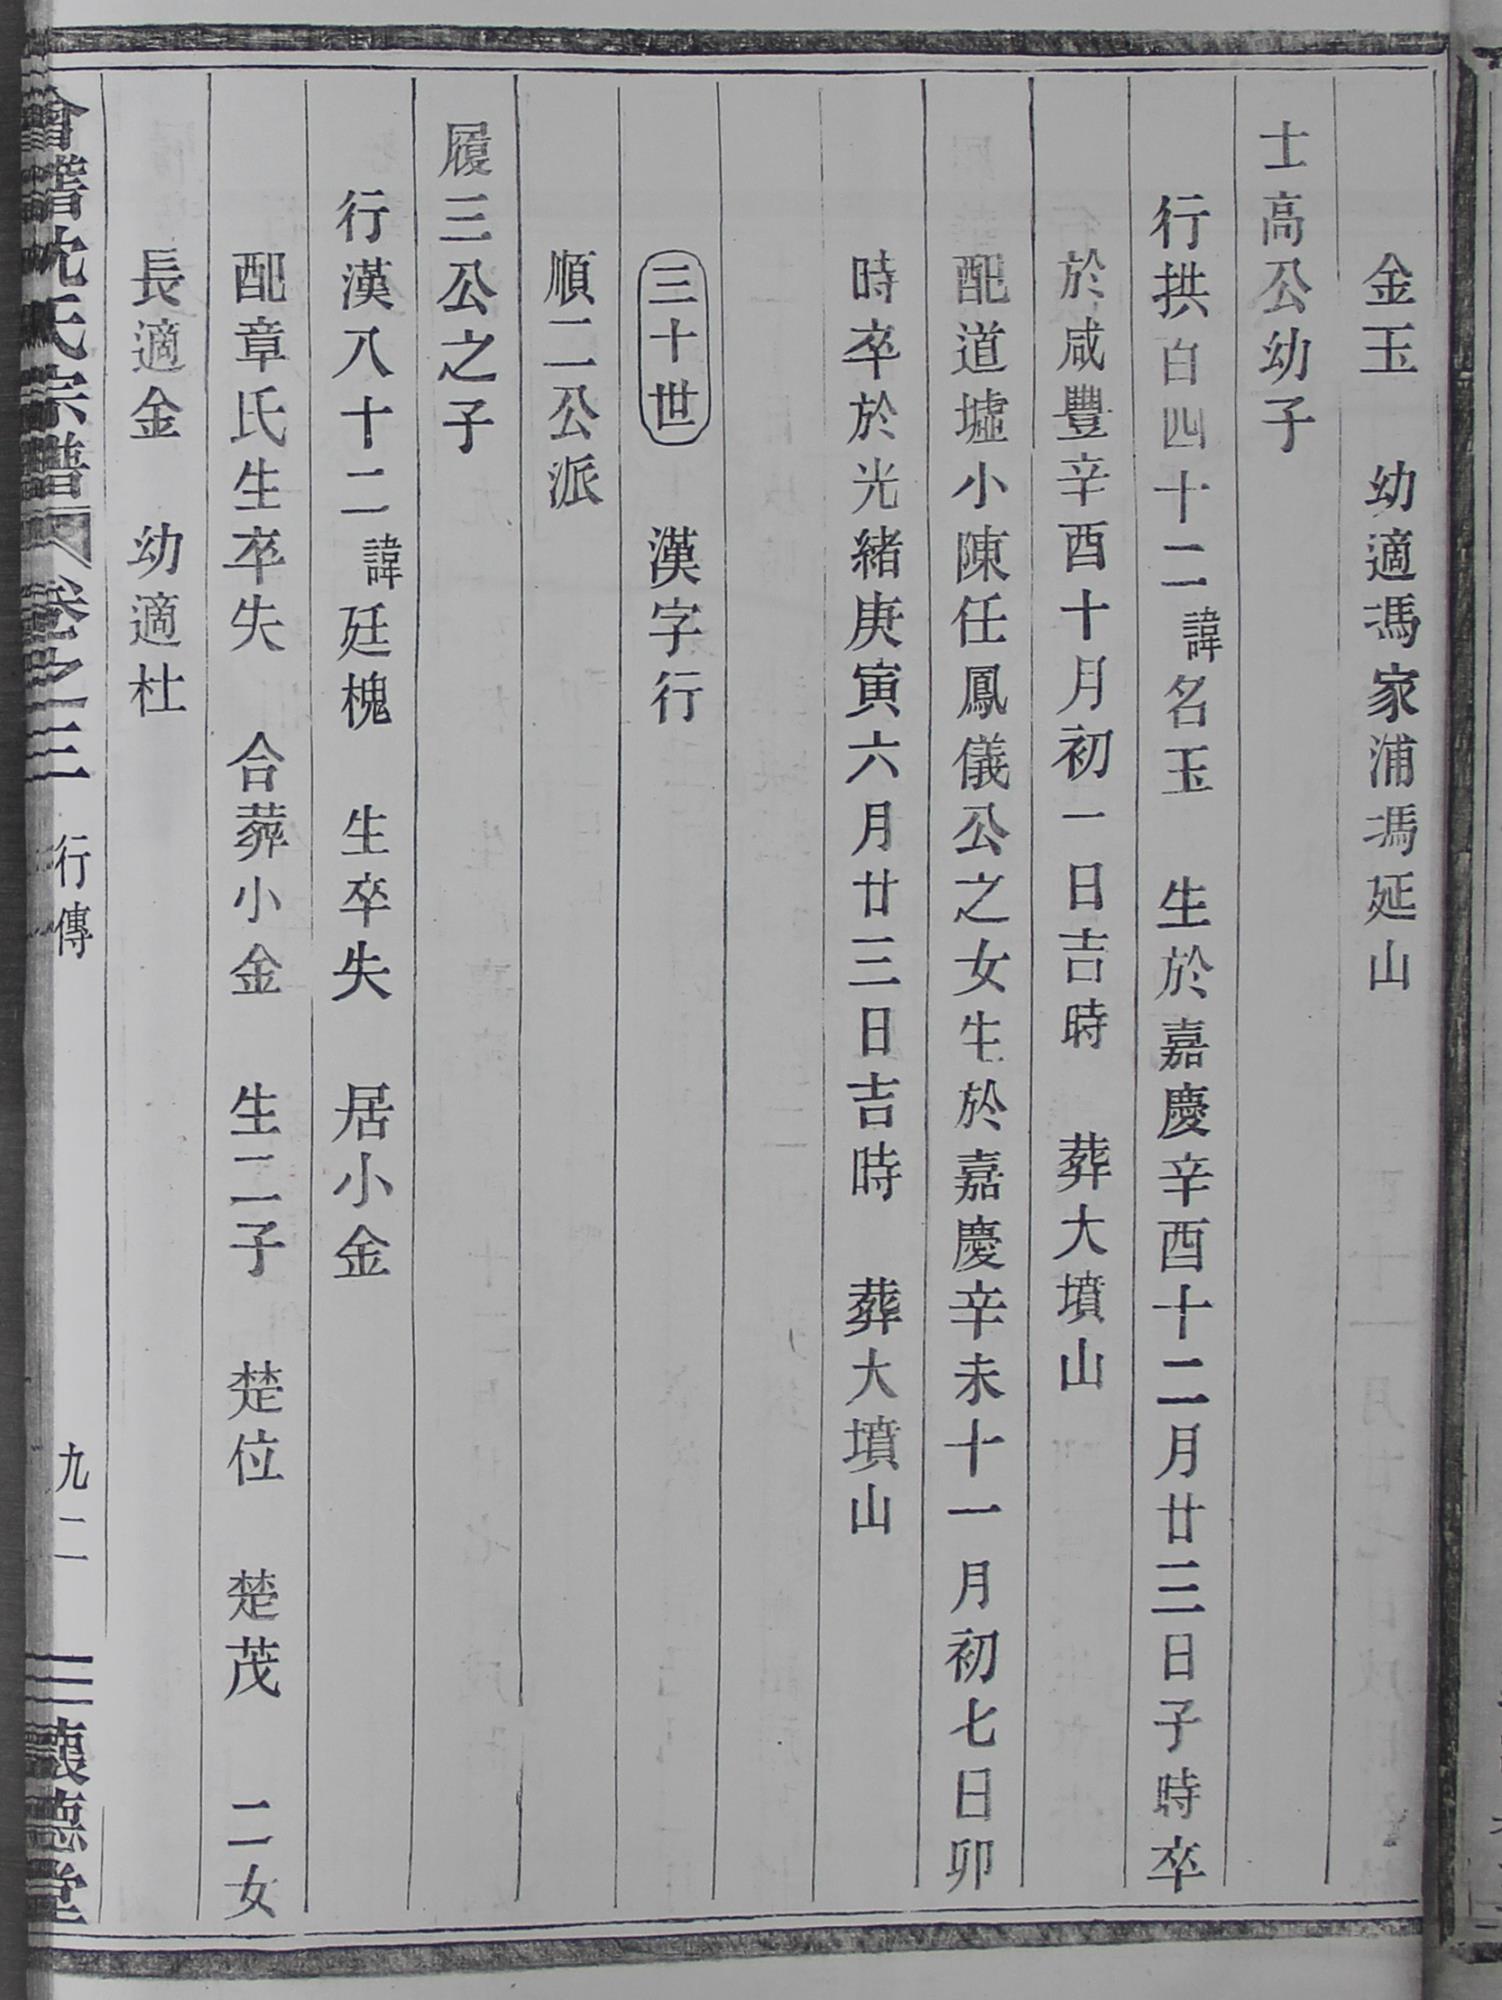 金玉　幼適馮家浦馮延山
士高公幼子
行拱百四十二諱名玉　生於嘉慶辛酉十二月廿三日子時卒
於咸豐辛酉十月初一日吉時　葬大墳山
配道墟小陳任鳳儀公之女生於嘉慶辛未十一月初七日卯
時卒於光緒庚寅六月廿三日吉時　葬大墳山
三十世　漢字行
順二公派
履三公之子
行漢八十二諱廷槐　生卒失　居小金
配章氏生卒失　合葬小金　生二子　楚位　楚茂　二女
長適金　幼適杜
會稽沈氏宗譜　卷之三　行傳　九二　懷德堂